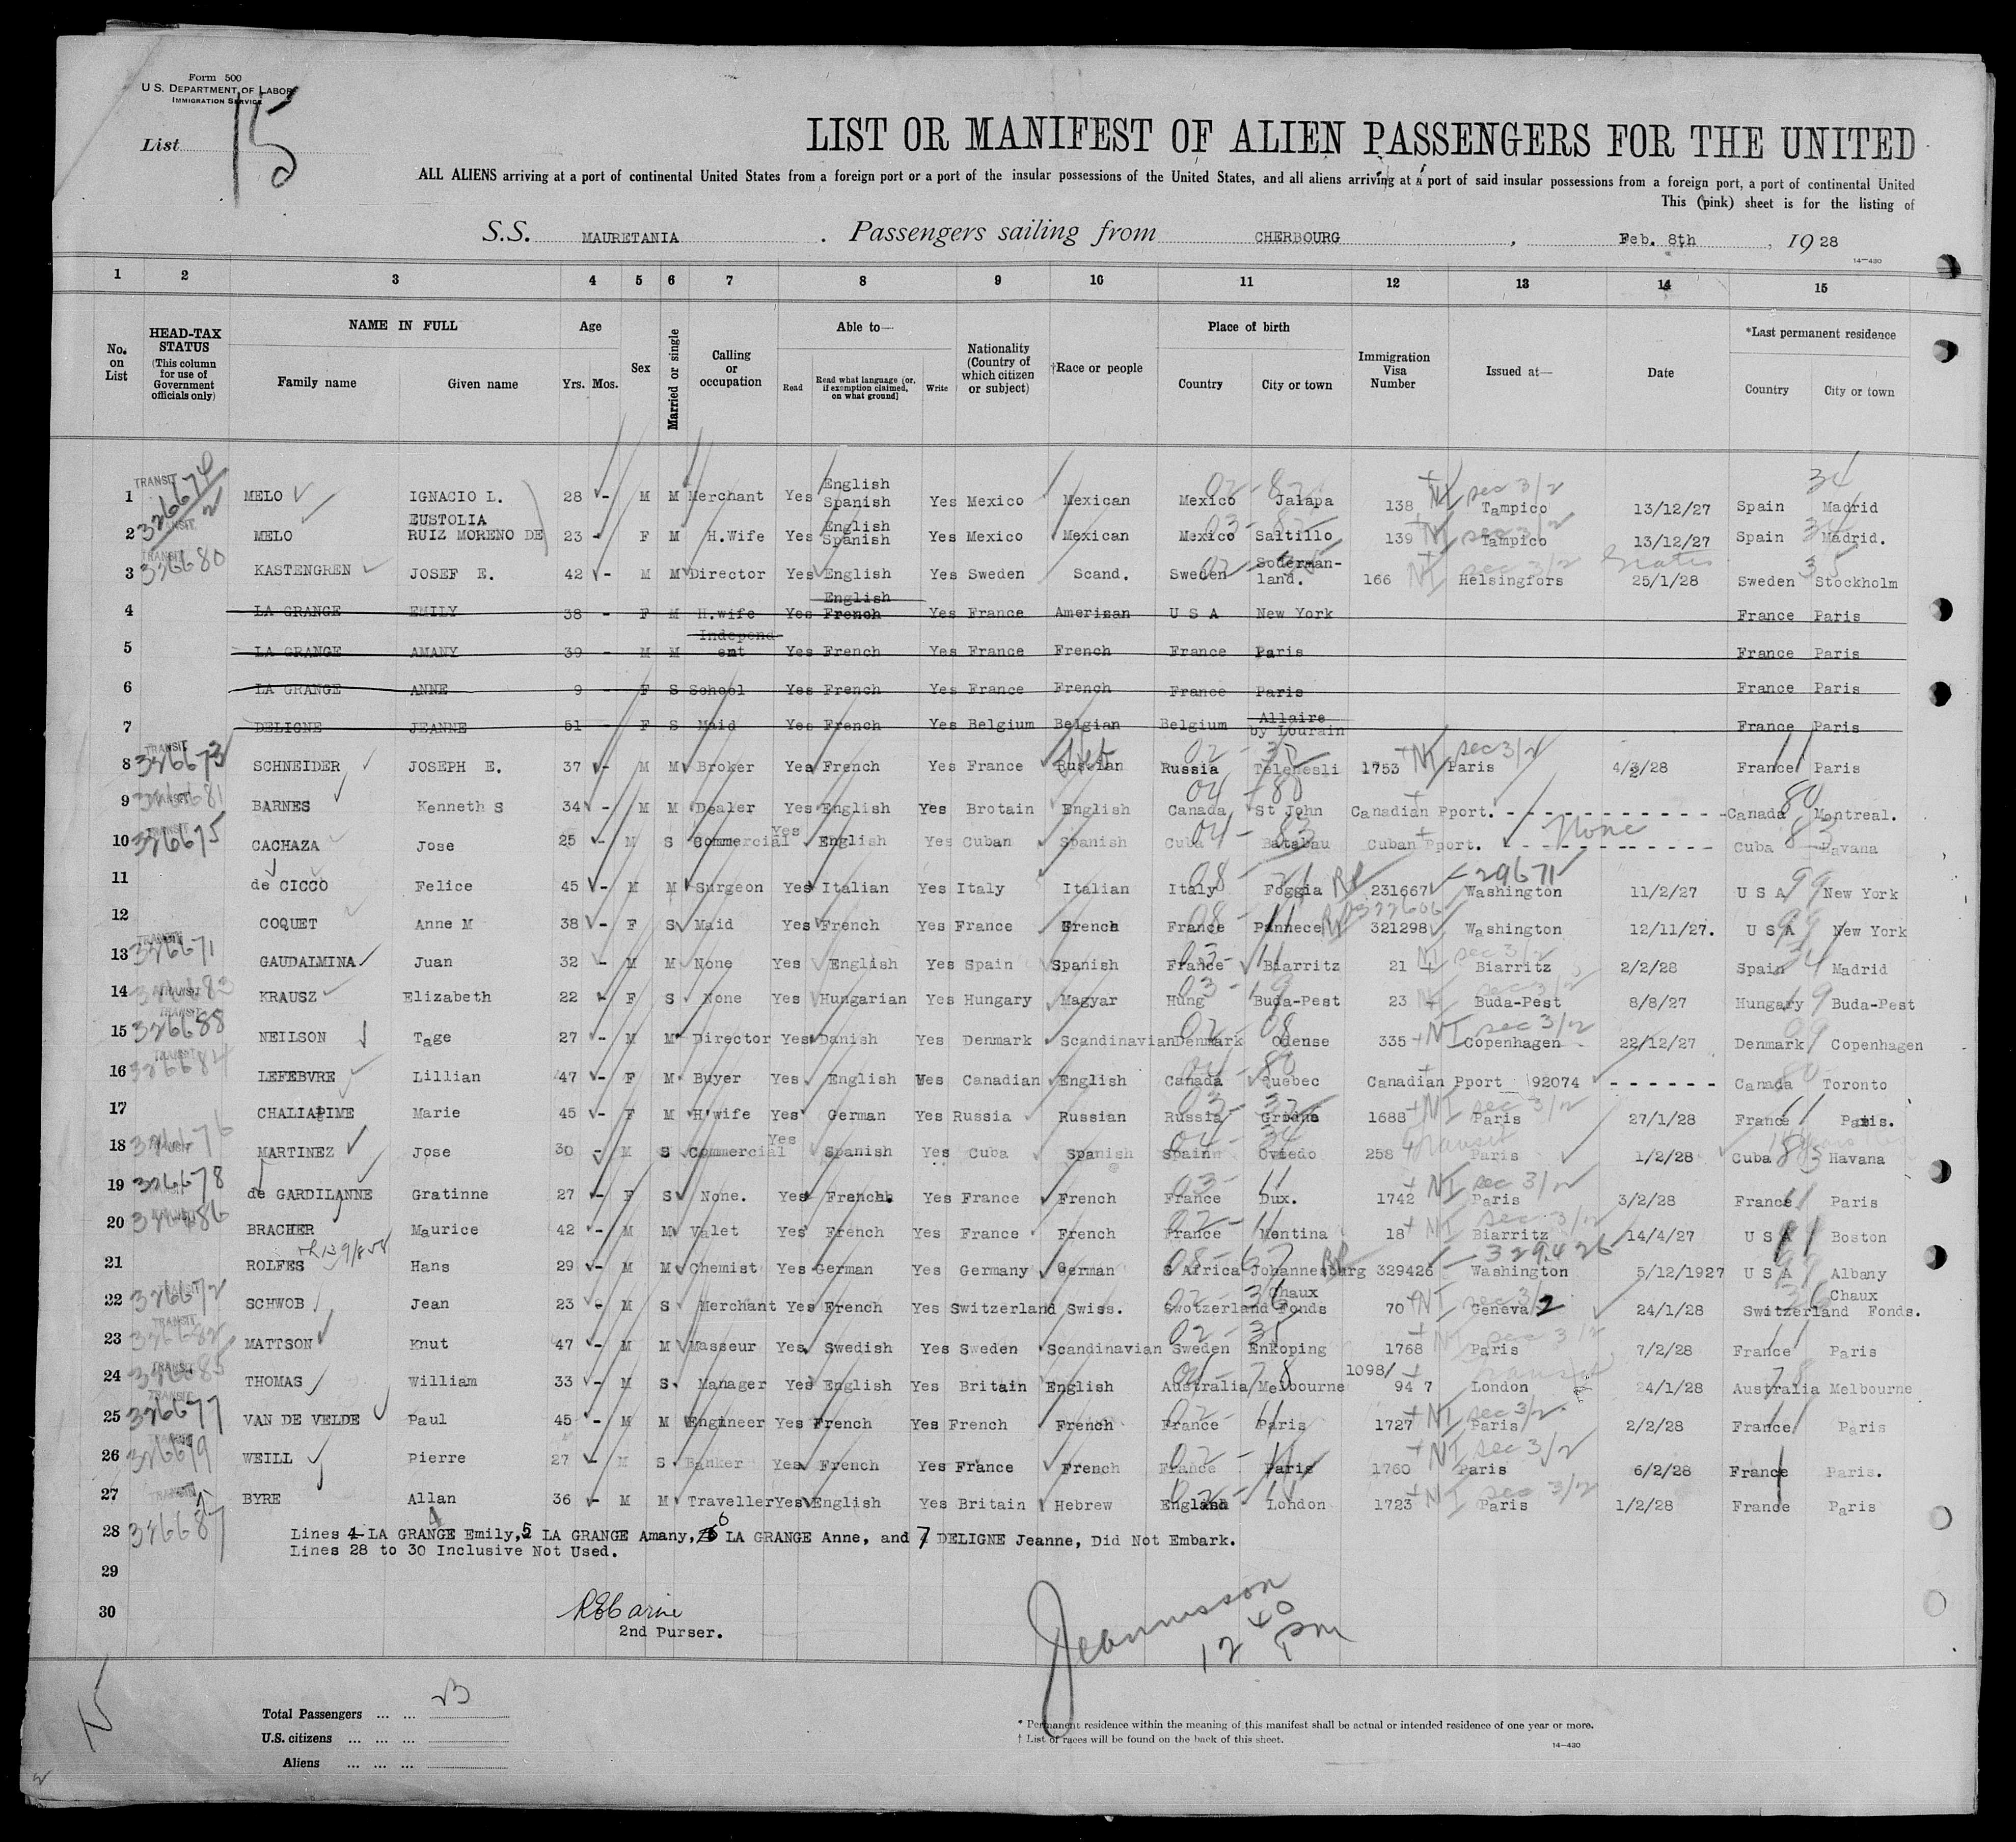 Form 500
U.S. DEPARTMENT OF LABOR
IMMIGRATION SERVICE
List 15
LIST OR MANIFEST OF ALIEN PASSENGERS FOR THE UNITED
ALL ALIENS arriving at a port of continental United States from a foreign port or a port of the insular possessions of the United States, and all aliens arriving at a port of said insular possessions from a foreign port, a port of continental United
This (pink) sheet is for the listing of
S.S. MAURETANIA . Passengers sailing from CHERBOURG , Feb. 8th , 1928
14—430
1 2 3 4 5 6 7 8 9 10 11 12 13 14 15
No. on List HEAD-TAX STATUS (This column for use of Government officials only) NAME IN FULL Family name Given name Age Yrs. Mos. Sex Married or single Calling or occupation Able to— Read Read what language [or, if exemption claimed, on what ground] Write Nationality (Country of which citizen or subject) †Race or people Place of birth Country City or town Immigration Visa Number Issued at— Date *Last permanent residence Country City or town
1 TRANSIT 326674/2 MELO IGNACIO L. 28 - M M Merchant Yes English Spanish Yes Mexico Mexican Mexico Jalapa 138 NI sec 3/2 Tampico 13/12/27 Spain Madrid 34
2 TRANSIT MELO EUSTOLIA RUIZ MORENO DE 23 - F M H.Wife Yes English Spanish Yes Mexico Mexican Mexico Saltillo 139 NI sec 3/2 Tampico 13/12/27 Spain Madrid.
3 TRANSIT 326680 KASTENGREN JOSEF E. 42 - M M Director Yes English Yes Sweden Scand. Sweden Soderman-land. 166 NI sec 3/2 Helsingfors Gratis 25/1/28 Sweden Stockholm 35
4 LA GRANGE EMILY 38 - F M H.wife Yes English French Yes France American U S A New York France Paris
5 LA GRANGE AMANY 39 - M M Independ ent Yes French Yes France French France Paris France Paris
6 LA GRANGE ANNE 9 - F S School Yes French Yes France French France Paris France Paris
7 DELIGNE JEANNE 51 - F S Maid Yes French Yes Belgium Belgian Belgium Allaire by Lourain France Paris
8 TRANSIT 326673 SCHNEIDER JOSEPH E. 37 - M M Broker Yes French Yes France Russian Russia Telenesli 1753 NI sec 3/2 Paris 4/2/28 France Paris
9 326681 BARNES Kenneth S 34 - M M Dealer Yes English Yes Brotain English Canada St John 04 - 80 Canadian Pport. - - - - Canada Montreal. 80
10 TRANSIT 326675 CACHAZA Jose 25 - M S Commercial Yes English Yes Cuban Spanish Cuba Batabau 04 - 83 Cuban Pport. None - - - - Cuba Havana 83
11 de CICCO Felice 45 - M M Surgeon Yes Italian Yes Italy Italian Italy Foggia 231667 29671 Washington 11/2/27 U S A New York 99
12 COQUET Anne M 38 - F S Maid Yes French Yes France French France Pannece 321298 Washington 12/11/27. U S A New York 99
13 TRANSIT 326671 GAUDAIMINA Juan 32 - M M None Yes English Yes Spain Spanish France Biarritz 21 NI sec 3/2 Biarritz 2/2/28 Spain Madrid 34
14 TRANSIT 326683 KRAUSZ Elizabeth 22 - F S None Yes Hungarian Yes Hungary Magyar Hung Buda-Pest 23 NI sec 3/2 Buda-Pest 8/8/27 Hungary Buda-Pest 19
15 TRANSIT 326688 NEILSON Tage 27 - M M Director Yes Danish Yes Denmark Scandinavian Denmark Odense 335 NI sec 3/2 Copenhagen 22/12/27 Denmark Copenhagen 09
16 TRANSIT 326684 LEFEBVRE Lillian 47 - F M Buyer Yes English Yes Canadian English Canada Quebec 04 - 80 Canadian Pport 92074 - - - - - - Canada Toronto 80
17 CHALIAPINE Marie 45 - F M H'wife Yes German Yes Russia Russian Russia 1688 NI sec 3/2 Paris 27/1/28 France Paris.
18 TRANSIT 326676 MARTINEZ Jose 30 - M S Commercial Yes Spanish Yes Cuba Spanish Spain Oviedo 04 - 34 258 Transit Paris 1/2/28 Cuba Havana 83
19 326678 de GARDILANNE Gratinne 27 - F S None. Yes French. Yes France French France Dux. 1742 NI sec 3/2 Paris 3/2/28 France Paris
20 326686 BRACHER Maurice 42 - M M Valet Yes French Yes France French France Mentina 18 NI sec 3/2 Biarritz 14/4/27 U S A Boston
21 ROLFES Hans 29 - M M Chemist Yes German Yes Germany German S Africa Johannesburg 329426 329426 Washington 5/12/1927 U S A Albany
22 TRANSIT 326672 SCHWOB Jean 23 - M S Merchant Yes French Yes Switzerland Swiss. Swotzerland Chaux Fonds 70 NI sec 3/2 Geneva 24/1/28 Switzerland Chaux Fonds. 36
23 TRANSIT 326682 MATTSON Knut 47 - M M Masseur Yes Swedish Yes Sweden Scandinavian Sweden Enkoping 02 - 35 1768 NI sec 3/2 Paris 7/2/28 France Paris
24 TRANSIT 326685 THOMAS William 33 - M S Manager Yes English Yes Britain English Australia Melbourne 1098/ 94 7 Transit London 24/1/28 Australia Melbourne 78
25 TRANSIT 326677 VAN DE VELDE Paul 45 - M M Engineer Yes French Yes French French France Paris 1727 NI sec 3/2 Paris 2/2/28 France Paris
26 326679 WEILL Pierre 27 - M S Banker Yes French Yes France French France Paris 1760 NI sec 3/2 Paris 6/2/28 France Paris.
27 TRANSIT BYRE Allan 36 - M M Traveller Yes English Yes Britain Hebrew England London 1723 NI sec 3/2 Paris 1/2/28 France Paris
28 326687 Lines 4 LA GRANGE Emily, 5 LA GRANGE Amany, 6 LA GRANGE Anne, and 7 DELIGNE Jeanne, Did Not Embark.
Lines 28 to 30 Inclusive Not Used.
29
30
2nd Purser.
12 40 pm
Total Passengers ... ... 23
U.S. citizens ... ... ...
Aliens ... ... ...
* Permanent residence within the meaning of this manifest shall be actual or intended residence of one year or more.
† List of races will be found on the back of this sheet.
14—430